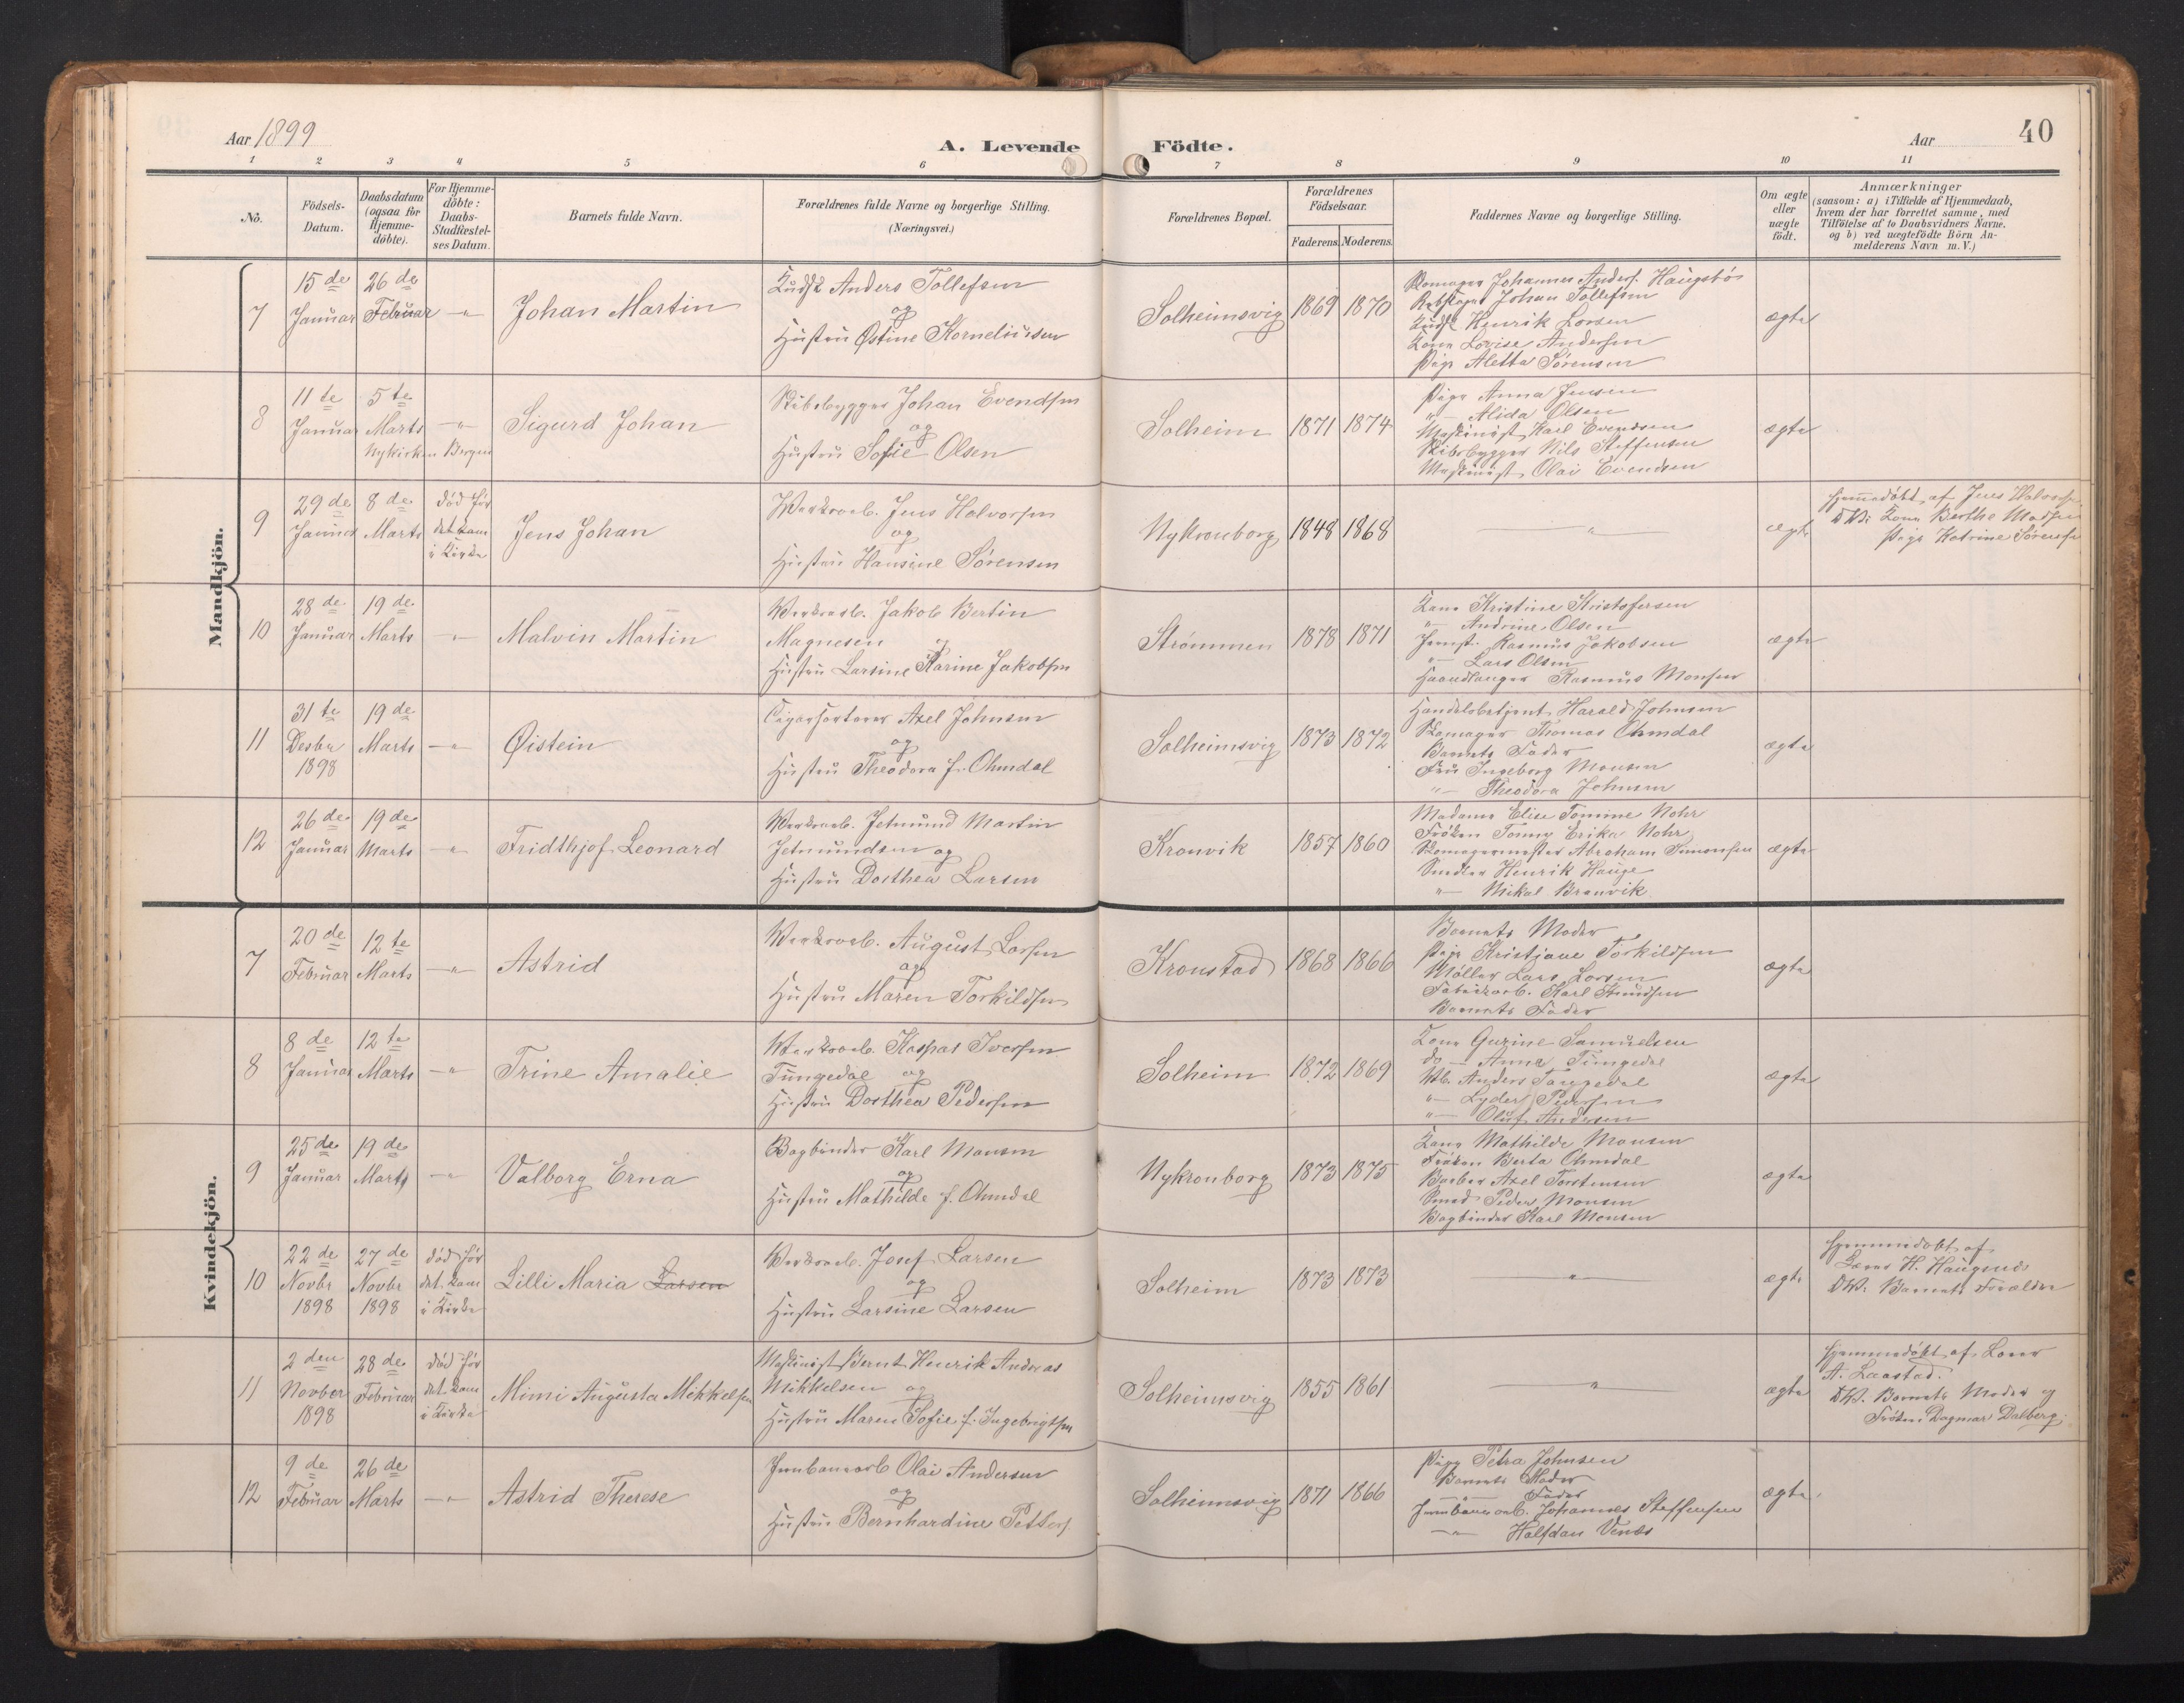 Aar 1899
A. Levende Födte.
Aar
40
1 2 3 4 5 6 7 8 9 10 11
No.
Födsels-Datum.
Daabsdatum (ogsaa for Hjemme-döbte).
For Hjemme-döbte: Daabs-Stadfæstel-ses Datum.
Barnets fulde Navn.
Forældrenes fulde Navne og borgerlige Stilling.
(Næringsvei.)
Forældrenes Bopæl.
Forældrenes Födselsaar.
Faderens. Moderens.
Faddernes Navne og borgerlige Stilling.
Om ægte eller uægte födt.
Anmærkninger
(saasom: a) i Tilfælde af Hjemmedaab,
hvem der har forrettet samme, med
Tilföielse af to Daabsvidners Navne,
og b) ved uægtefödte Börn An-
melderens Navn m. V.)
Mandkjön.
7
15de Januar
26de Februar
-"-
Johan Martin
Kudsk Anders Tollefsen
og
Hustru Østine Korneliussen
Solheimsvig
1869
1870
Skomager Johannes Anders. Haugsbø
Johan Tollefsen
Kudsk Henrik Larsen
Kone Lovise Andersen
Pige Aletta Sørensen
ægte
8
11te Januar
5te Marts
Nykirken Bergen
-"-
Sigurd Johan
Skibsbygger Johan Evendsen
og
Hustru Sofie Olsen
Solheim
1871
1874
Pige Anna Jensen
-"- Alida Olsen
Maskinist Karl Evendsen
Skibsbygger Nils Steffensen
Maskinist Olai Evendsen
ægte
9
29de Januar
8de Marts
död för
det kom
i Kirke
Jens Johan
Værksarb. Jens Halvorsen
og
Hustru Hansine Sørensen
Nykronborg
1848
1868
"
ægte
Hjemmedøbt af Jens Halvorsen
DV: Kone Berthe Madsen
Pige Katrine Sørensen
10
28de Januar
19de Marts
-"-
Malvin Martin
Værksarb. Jakob Bertin
Magnesen og
Hustru Larsine Karine Jakobsen
Strømmen
1878
1871
Kone Kristine Kristofersen
"- Andrine Olsen
Rasmus Jakobsen
"- Lars Olsen
Haandlanger Rasmus Monsen
ægte
11
31te Desbr 1898
19de Marts
-"-
Øistein
Cigarsorterer Axel Johnsen
og
Hustru Theodora f. Ohmdal
Solheimsvig
1873
1872
Handelsbetjent Harald Johnsen
Skomager Thomas Ohmdal
Barnets Fader
Fru Ingeborg Monsen
"- Theodora Johnsen
ægte
12
26de Januar
19de Marts
-"-
Fridthjof Leonard
Værksarb. Jetmund Martin
Jetmundsen og
Hustru Dorthea Larsen
Kronvik
1857
1860
Madame Elise Tomine Nohr
Frøken Tonny Erika Nohr
Skomagermester Abraham Simonsen
Snedker Henrik Hauge
"- Mikal Brenvik
ægte
Kvindekjön.
7
20de Februar
12te Marts
-"-
Astrid
Værksarb. August Larsen
og
Hustru Maren Torkildsen
Kronstad
1868
1866
Barnets Moder
Pige Kristjane Torkildsen
Møller Lars Larsen
Fabrikarb. Karl Knudsen
Barnets Fader
ægte
8
8de Januar
12te Marts
-"-
Trine Amalie
Værksarb. Kaspar Iversen
Tungedal og
Hustru Dorthea Pedersen
Solheim
1872
1869
Kone Gurine Samuelsen
do - Anna Tungedal
Anders Tungedal
"- Lyder Pedersen
"- Oluf Andersen
ægte
9
25de Januar
19de Marts
-"-
Valborg Erna
Bogbinder Karl Monsen
og
Hustru Mathilde f. Ohmdal
Nykronborg
1873
1875
Kone Mathilde Monsen
Frøken Berta Ohmdal
Barber Axel Torstensen
Smed Peder Monsen
Bogbinder Karl Monsen
ægte
10
22de Novbr 1898
27de Novbr 1898
död för
det kom
i Kirke
Lilli Maria Larsen
Værksarb. Josef Larsen
og
Hustru Larsine Larsen
Solheim
1873
1873
"
ægte
Hjemmedøbt af
Lærer H. Haugsnes
DV: Barnets Forældre
11
2den Novber 1898
28de Februar
död för
det kom
i Kirke
Mimi Augusta Mikkelsen
Maskinist Bernt Henrik Andreas
Mikkelsen og
Hustru Maren Sofie f. Ingebrigtsen
Solheimsvig
1855
1861
"
ægte
Hjemmedøbt af Lærer
A. Laastad.
DV. Barnets Moder og
Frøken Dagmar Dalberg.
12
9de Februar
26de Marts
-"-
Astrid Therese
Jernbanearb Olai Andersen
og
Hustru Bernhardine Petters.
Solheimsvig
1871
1866
Pige Petra Johnsen
Barnets Moder
-"- Fader
Jernbanearb. Johannes Steffensen
-"- Halfdan Venæs
ægte